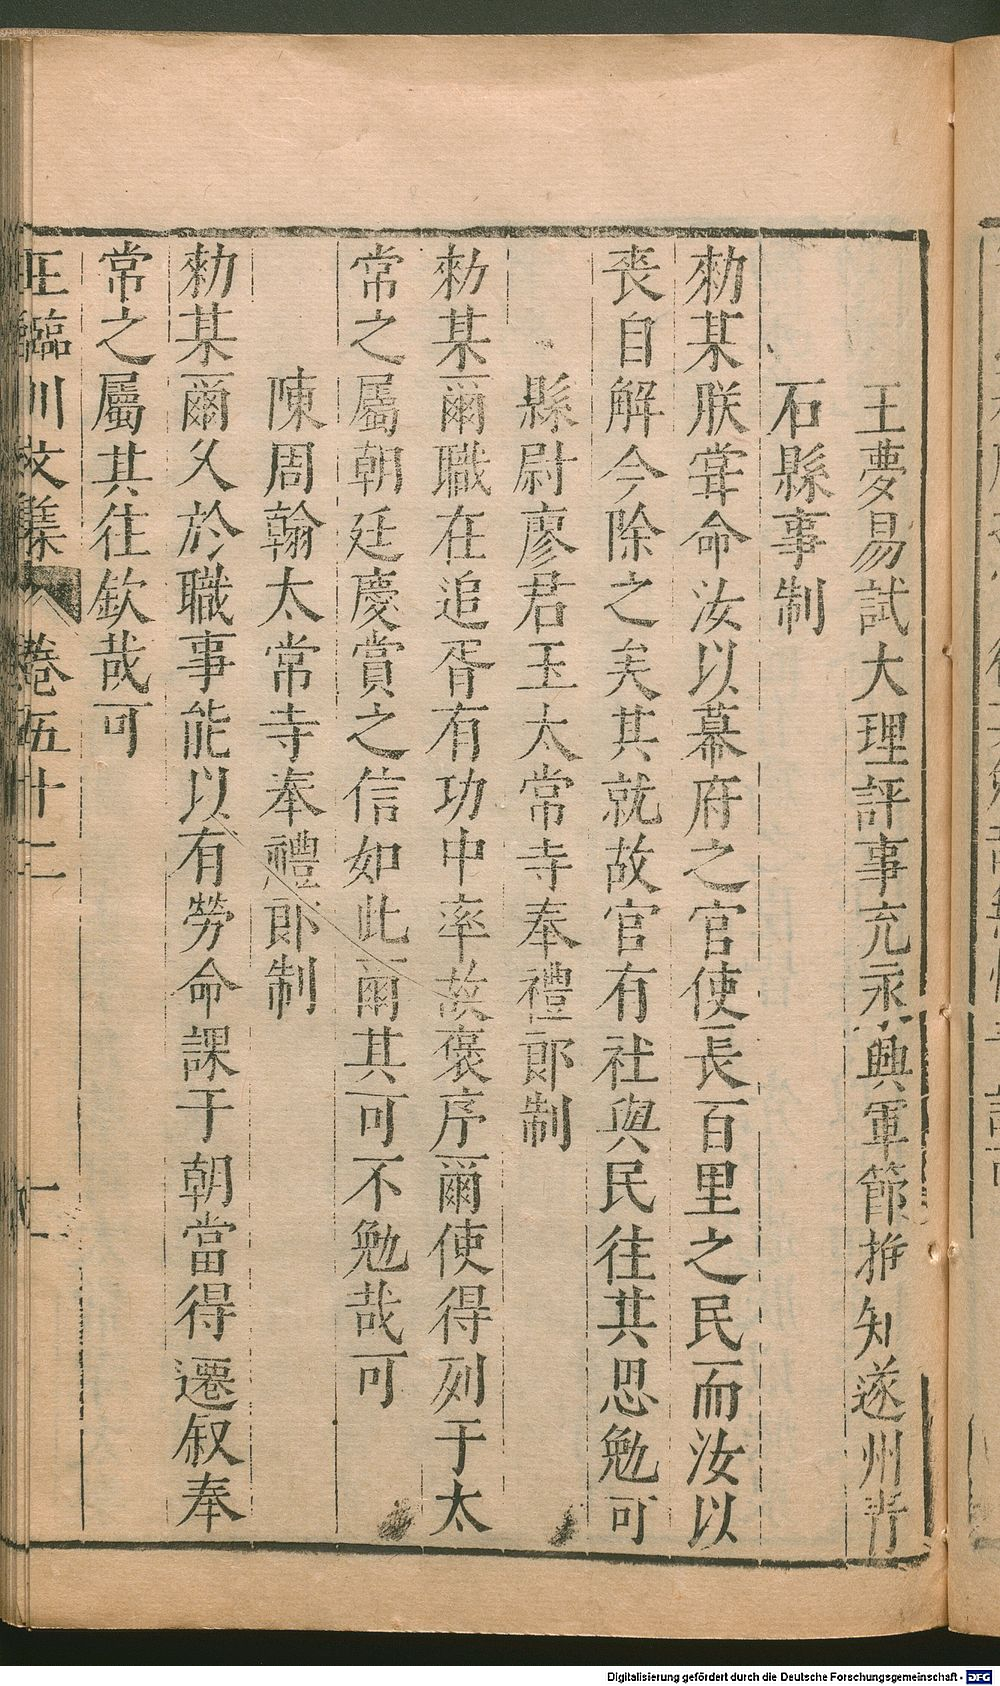 王夢易試大理評事充永興軍節推知遂州青
石縣事制
勑某朕嘗命汝以幕府之官使長百里之民而汝以
喪自解今除之矣其就故官有社與民往其思勉可
縣尉廖君玉太常寺奉禮郎制
勑某爾職在追胥有功中率故褒序爾使得列于太
常之屬朝廷慶賞之信如此爾其可不勉哉可
陳周翰太常寺奉禮郎制
勑某爾久於職事能以有勞命課于朝當得遷叙奉
常之屬其往欽哉可
王臨川文集 卷五十二 十一
Digitalisierung gefördert durch die Deutsche Forschungsgemeinschaft - DFG